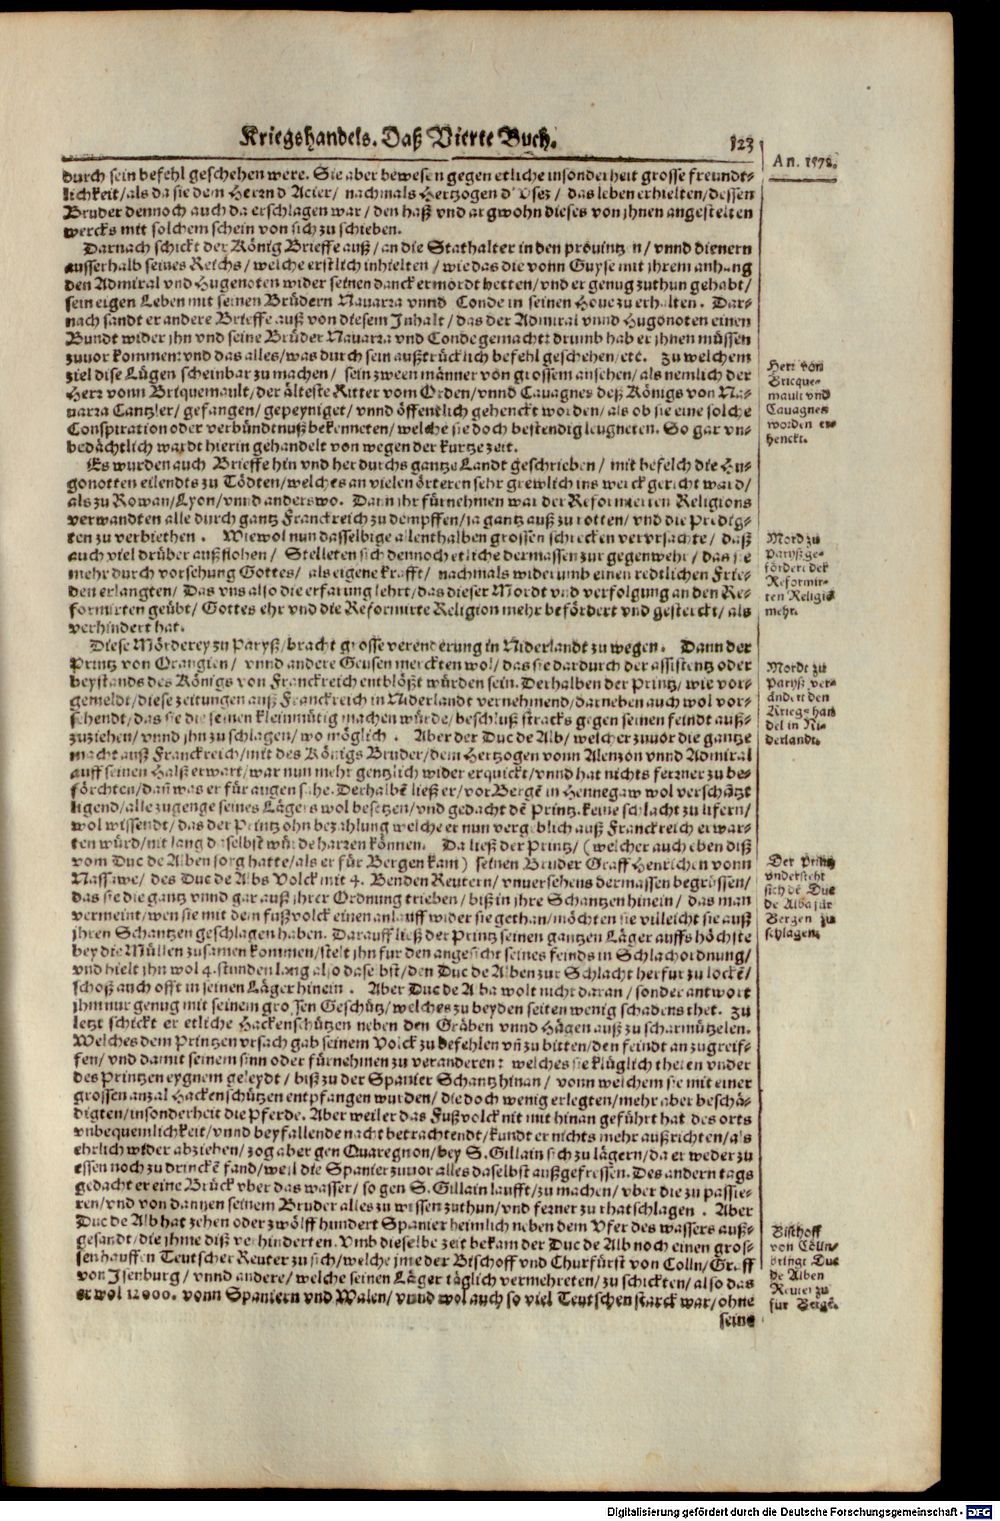 Kriegshandels. Daß Vierte Buch.
123
An. 1572.
durch sein befehl geschehen were. Sie aber bewesen gegen etliche insonderheit grosse freundt-
lichkeit/als da sie dem Herrn d'Acier/ nachmals Hertzogen d' / das leben erhielten/dessen
Bruder dennoch auch da erschlagen war/den haß vnd argwohn dieses von jhnen angestelten
wercks mit solchem schein von sich zu schieben.
Darnach schickt der König Brieffe auß/an die Stathalter in den provintzen/vnnd dienern
ausserhalb seines Reichs/welche erstlich inhielten/wie das die vonn Guyse mit jhrem anhang
den Admiral vnd Hugenoten wider seinen danck ermordt hetten/vnd er genug zuthun gehabt/
sein eigen Leben mit seinen Brüdern Nauarra vnnd Conde in seinen Houe zu erhalten. Dar-
nach sandt er andere Brieffe auß von diesem Inhalt/das der Admiral vnnd Hugonoten einen
Bundt wider jhn vnd seine Brüder Nauarra vnd Conde gemacht: drumb hab er jhnen müssen
zuuor kommen: vnd das alles/was durch sein außtrücklich befehl geschehen/etc. Zu welchem
ziel dise Lügen scheinbar zu machen/ sein zween männer von grossem ansehen/als nemlich der
Herr vonn Briquemault/der älteste Ritter vom Orden/vnnd Cauagnes deß Königs von Na-
uarra Cantzler/gefangen/gepeyniget/vnnd öffentlich gehenckt worden/als ob sie eine solche
Conspiration oder verbündtnuß bekenneten/welche sie doch bestendig leugneten. So gar vn-
bedächtlich wardt hierin gehandelt von wegen der kurtze zeit.
Es wurden auch Brieffe hin vnd her durchs gantze Landt geschrieben/ mit befelch die Hu-
gonotten eilendts zu Tödten/welches an vielen örteren sehr grewlich ins werck gericht ward/
als zu Rowan/Lyon/vnnd anderswo. Dann jhr fürnehmen war der Reformierten Religions
verwandten alle durch gantz Franckreich zu dempffen/ja gantz auß zu rotten/vnd die Predig-
ten zu verbiethen. Wiewol nun dasselbige allenthalben grossen schrecken verursachte/ daß
auch viel drüber außflohen/ Stelleten sich dennoch etliche dermassen zur gegenwehr/das sie
mehr durch vorsehung Gottes/ als eigene krafft/ nachmals widerumb einen redtlichen Frie-
den erlangten/ Das vns also die erfarung lehrt/das dieser Mordt vnd verfolgung an den Re-
formirten geübt/ Gottes ehr vnd die Reformirte Religion mehr befördert vnd gesterckt/als
verhindert hat.
Diese Mörderey zu Paryß/bracht grosse verenderung in Niderlandt zu wegen. Dann der
Printz von Orangien/ vnnd andere Geusen merckten wol/das sie dardurch der assistentz oder
beystands des Königs von Franckreich entblößt würden sein. Derhalben der Printz/wie vor-
gemeldt/diese zeitungen auß Franckreich in Niderlandt vernehmend/darneben auch wol vor-
sehendt/das sie die seinen kleinmütig machen würde/beschluß stracks gegen seinen feindt auß-
zuziehen/vnnd jhn zu schlagen/wo möglich. Aber der Duc de Alb/welcher zuuor die gantze
macht auß Franckreich/mit des Königs Bruder/dem Hertzogen vonn Alenzon vnnd Admiral
auff seinen Halß erwart/war nun mehr gentzlich wider erquickt/vnnd hat nichts ferrner zu be-
förchten/dañ was er für augen sahe. Derhalbē ließ er/vor Bergē in Hennegaw wol verschātzt
ligend/alle zugenge seines Lägers wol besetzen/vnd gedacht dē Printz. keine schlacht zu lifern/
wol wissendt/das der Printz ohn bezahlung welche er nun vergeblich auß Franckreich erwar-
ten würd/nit lang daselbst würde harren können. Da ließ der Printz/(welcher auch eben diß
vom Duc de Alben sorg hatte/als er für Bergen kam) seinen Bruder Graff Henrichen vonn
Nassawe/ des Duc de Albs Volck mit 4. Benden Reutern/vnuersehens dermassen begrüssen/
das sie die gantz vnnd gar auß jhrer Ordnung trieben/ biß in jhre Schantzen hinein/ das man
vermeint/wen sie mit dem fußvolck einen anlauff wider sie gethan/möchten sie villeicht sie auß
jhren Schantzen geschlagen haben. Darauff ließ der Printz seinen gantzen Läger auffs höchste
bey die Müllen zusamen kommen/stelt jhn für den angesicht seines feinds in Schlachordnung/
vnd hielt jhn wol 4. stunden lang also daselbst/den Duc de Alben zur Schlacht herfur zu lockē/
schoß auch offt in seinen Läger hinein. Aber Duc de Alba wolt nicht daran/sonder antwort
jhm nur genug mit seinem grossen Geschütz/welches zu beyden seiten wenig schadens thet. Zu
letzt schickt er etliche Hackenschützen neben den Gräben vnnd Hägen auß zu scharmützelen.
Welches dem Printzen vrsach gab seinem Volck zu befehlen vñ zu bitten/den feindt anzugreif-
fen/vnd damit seinem sinn oder fürnehmen zu veranderen: welches sie klüglich theten vnder
des Printzen eygnem geleydt/ biß zu der Spanier Schantz hinan/ vonn welchem sie mit einer
grossen anzal Hackenschützen entpfangen wurden/die doch wenig erlegten/mehr aber beschä-
digten/insonderheit die Pferde. Aber weil er das Fußvolck nit mit hinan geführt hat des orts
vnbequemlichkeit/vnnd beyfallende nacht betrachtendt/kundt er nichts mehr außrichten/als
ehrlich wider abziehen/zog aber gen Quaregnon/bey S. Gillain sich zu lägern/da er weder zu
essen noch zu drinckē fand/weil die Spanier zuuor alles daselbst außgefressen. Des andern tags
gedacht er eine Brück vber das wasser/ so gen S. Gillain laufft/zu machen/vber die zu passie-
ren/vnd von dannen seinem Bruder alles zu wissen zuthun/vnd ferner zu rhatschlagen. Aber
Duc de Alb hat zehen oder zwölff hundert Spanier heimlich neben dem Vfer des wassers auß-
gesandt/die jhme diß verhinderten. Vmb dieselbe zeit bekam der Duc de Alb noch einen gros-
sen hauffen Teutscher Reuter zu sich/welche jme der Bischoff vnd Churfürst von Colln/Graff
von Isenburg/ vnnd andere/welche seinen Läger täglich vermehreten/zu schickten/also das
er wol 12000. vonn Spaniern vnd Walen/vnnd wol auch so viel Teutschen starck war/ohne
seine
Herr von
Bricque-
mault vnd
Cauagnes
worden er-
henckt.
Mord zu
Paryß ge-
fördert der
Reformir-
ten Religiō
mehr.
Mordt zu
Paryß ver-
ändert den
Kriegshan
del in Ni-
derlandt.
Der Printz
vndersteht
sich dē Duc
de Alba für
Bergen zu
schlagen.
Bischoff
von Cölln
bringt Duc
de Alben
Reuter zu
für Bergē.
Digitalisierung gefördert durch die Deutsche Forschungsgemeinschaft - DFG